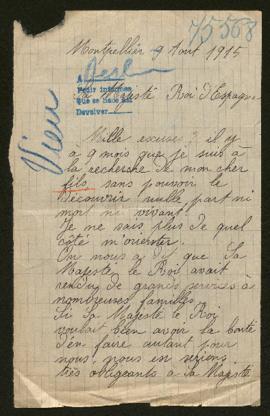 75568
Montpellier 9 Aout 1915
A
Pedir informes
Que se hace así
Devolver
Vieu
Sa Majesté Roi d'Espagne
Mille excuses s'il y a
9 mois que je suis à
la recherche de mon cher
fils, sans pouvoir le
découvrir nulle part ni
mort ni vivant.
Je ne sais plus de quel
côté m'orienter.
On nous a dit que Sa
Majesté le Roi avait
rendu de grands services à
nombreuses familles.
Si Sa Majesté le Roi
voulait bien avoir la bonté
d'en faire autant pour
nous, nous en serions
très obligeants à sa Majesté